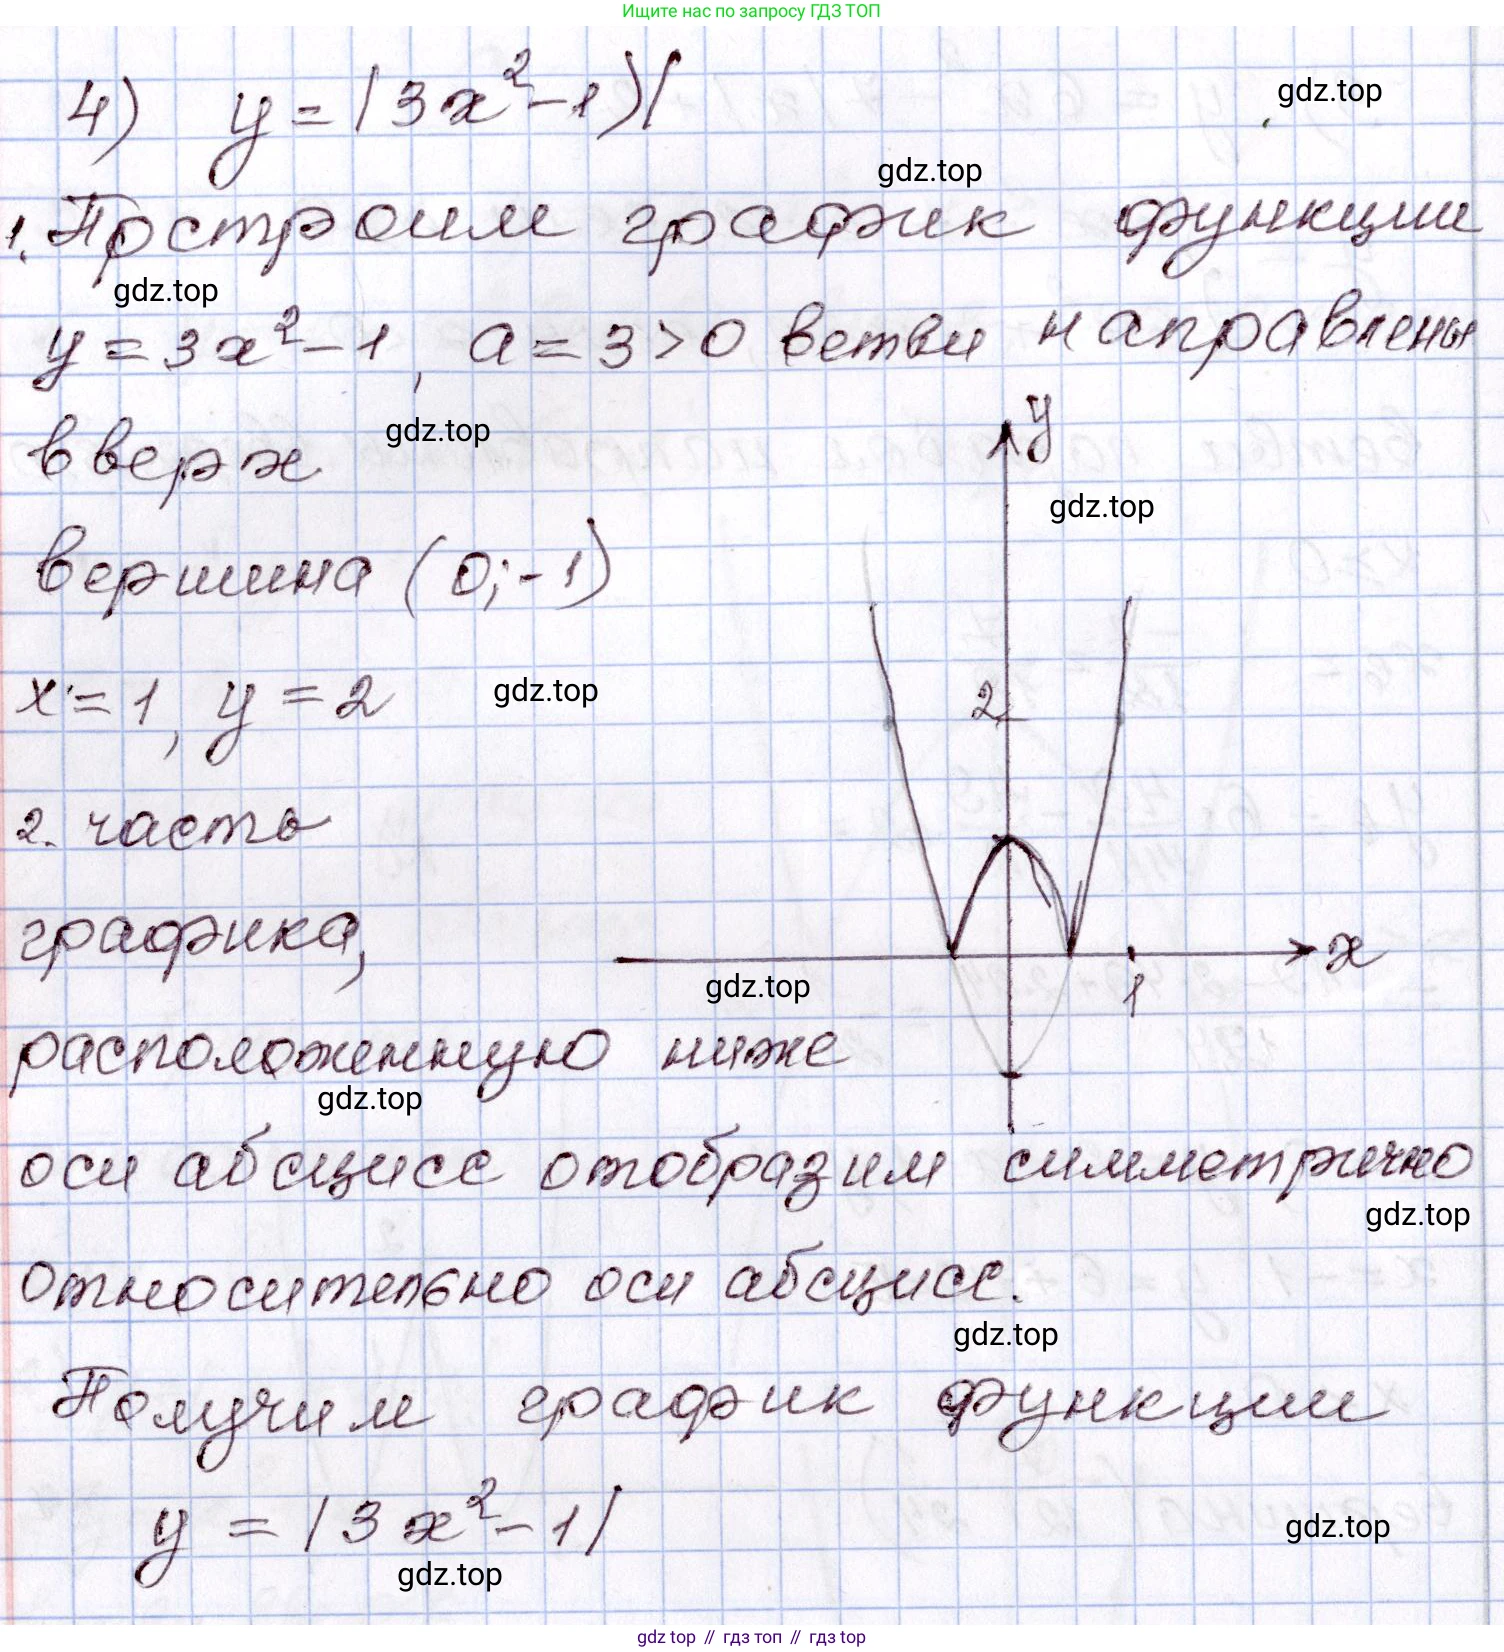 Ищите нас по запросу ГДЗ ТОП
4) y = |3x²-1)|
gdz.top
gdz.top
1. Построим график функции
gdz.top
y = 3x²-1, a = 3 > 0 ветви направлены
gdz.top
вверх
y
gdz.top
вершина (0; -1)
x = 1, y = 2
gdz.top
2
2. часть
графика,
x
gdz.top
1
расположенную ниже
gdz.top
оси абсцисс отобразим симметрично
gdz.top
относительно оси абсцисс.
gdz.top
Получим график функции
y = |3x²-1|
gdz.top
gdz.top
gdz top // гдз топ // гдз top